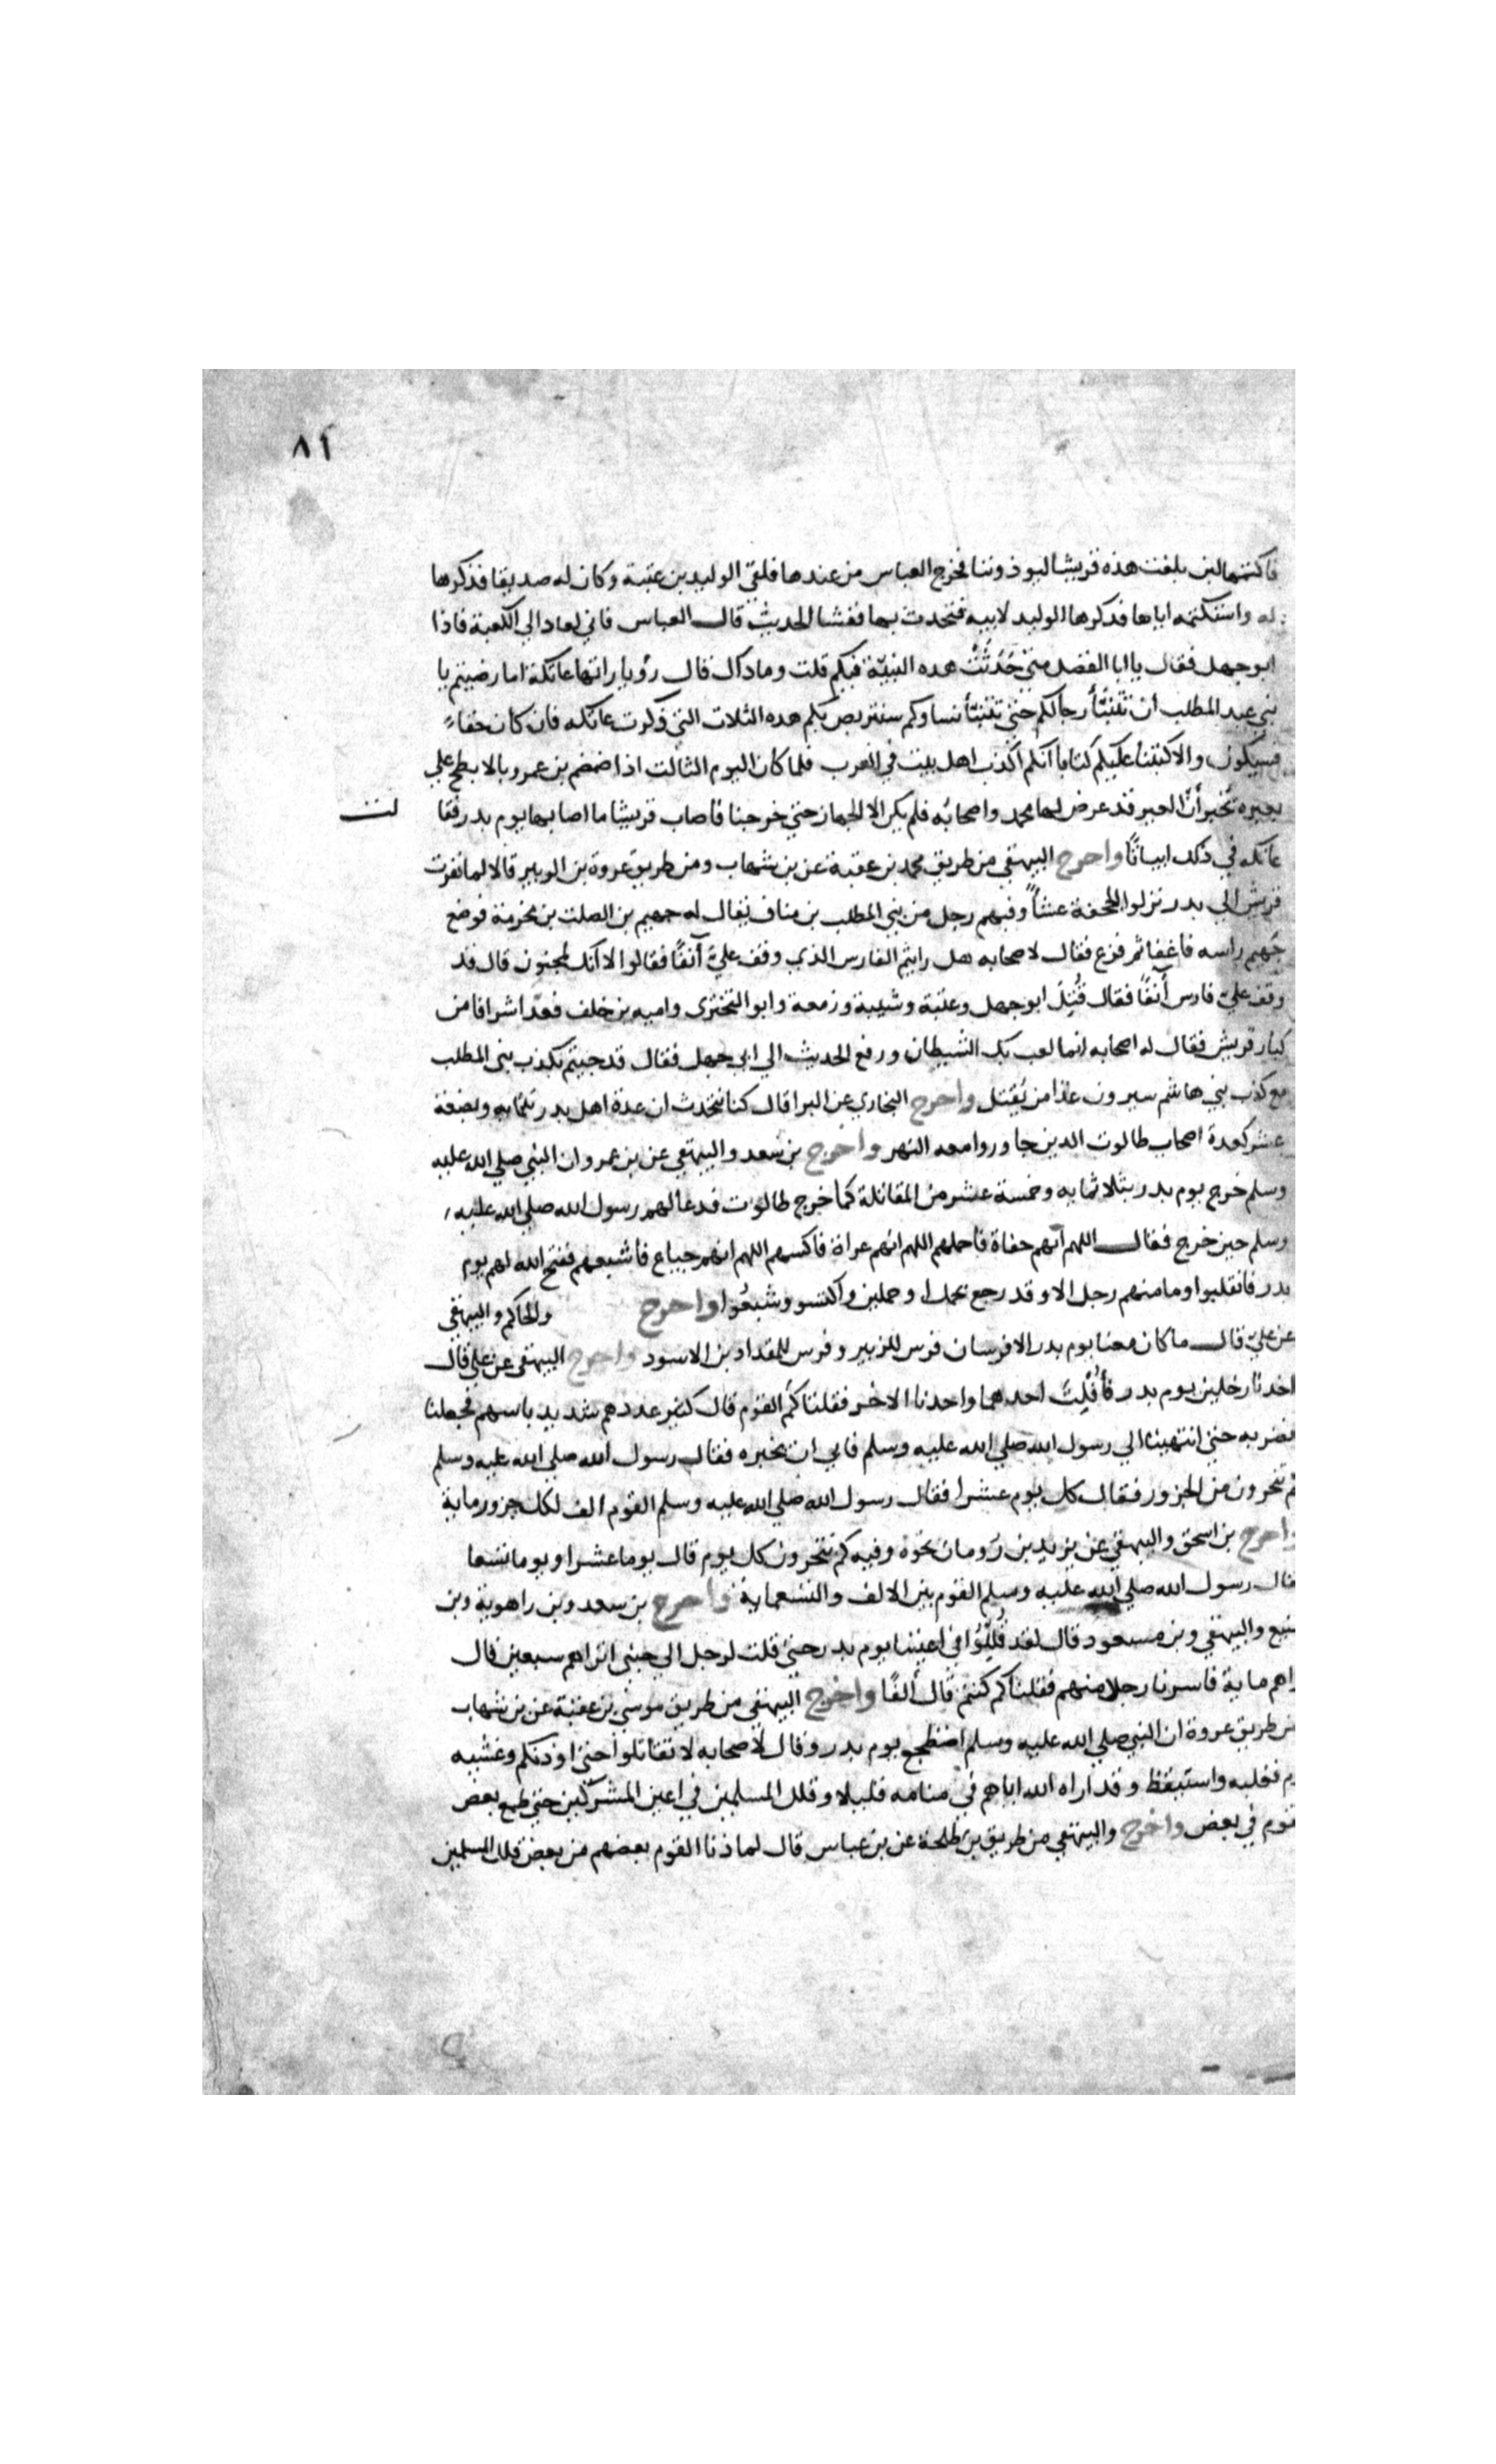 ٨١
فاكتمها لين بلغت هذه قريشا ليوذوننا فخرج العباس من عندها فلقي الوليد بن عتبة وكان له صديقا فذكرها
له واستكتمه اياها فذكرها الوليد لابيه فتحدث بها ففشا الحديث قال العباس فاني لعاد الي الكعبة فاذا
ابو جهل فقال يا ابا الفضل متي حُدِّثَتْ هده النبيّة فيكم قلت وما داك قال رؤيا راتها عاتكة اما رضيتم يا
بني عبد المطلب أن تَنَبَّأَ رجالكم حتي تتنبّأ نساوكم سنتربص بكم هده الثلاث التي ذكرت عاتكه فان كان حقاً
فسيكون والا كتبنا عليكم كتابا أنكم أكذب اهل بيت في العرب فلما كان اليوم الثالت اذا ضمضم بن عمرو بالابطح علي
بعيره يخبر أنّ العير قد عرض لها محمد واصحابُه فلم يكن الا الجهاز حتي خرجنا فاصاب قريشا ما اصابها يوم بدر فقا
لت
عاتكه في ذلك ابياتًا واخرج البيهقي من طريق محمد بن عقبة عن بن شهاب ومن طريق عروة بن الزبير قالا لما نفرت
قريش الي بدر نزلوا الجحفة عشاً وفيهم رجل من بني المطلب بن مناف يقال له جهيم بن الصلت بن مخرمة فوضع
جَهيم راسه فاغفا ثم فزع فقال لاصحابه هل رايتم الفارس الذي وقف عليّ آنفًا فقالوا لا أنك لمجنون قال قد
وقف عليّ فارس أنفًا فقال قُتِلَ ابو جهل وعتبة وشيبة وزمعة وابو البَخترى واميه بن خلف فعدّ اشرافا من
كبار قريش فقال له اصحابه انما لعب بك الشيطان ورفع الحديث الي ابي جهل فقال قد جيتم بكذب بنى المطلب
مع كذب بني هاشم سيرون غدا من يُقتل واخرج البخاري عن البرا قال كنا نتحدث ان عدة اهل بدر ثلثمايه وبضعة
عشر كعدة اصحاب طالوت الدين جاوروا معه النهر واخرج بن سَعد والبيهقي عن بن عمرو ان النبي صلي الله عليه
وسلم خرج يوم بدر بثلاثمايه وخمسة عشر من المقاتلة كما خرج طالوت فدعا لهم رسول الله صلي الله عليه
وسلم حين خرج فقال اللهم أنهم حفاة فاحملهم اللهم انهم عراة فاكسهم اللهم انهم جياع فاشبعهم ففتح الله لهم يوم
بدر فانقلبوا وما منهم رجل الا وقد رجع بجمل او جملين واكتسو وشبعُوا واخرج والحاكم والبيهقي
عن عليّ قال ما كان معنا يوم بدر الا فرسان فرس للزبير وفرس للمقداد بن الاسود واخرج البيهقى عن علي قال
اخدنا رجلين يوم بدر فأُفْلِتَ احدهما واحدنا الاخر فقلنا كَم القوم قال كثير عددهم شديد باسهم فجعلنا
نضربه حتي انتهينا الي رسول الله صلي الله عليه وسلم فابي ان يخبره فقال رسول الله صلي الله عليه وسلم
كم تنحرون من الجزور فقال كل يوم عشرا فقال رسول الله صلي الله عليه وسلم القوم الف لكل جزور ماية
واخرج بن اسحق والبيهقي عن يزيد بن رُومان نحوَه وفيه كم تنحرون كل يوم قال يوما عشرا ويوما تسعا
فقال رسول الله صلي الله عليه وسلم القوم بين الالف والتسعماية واخرج بن سعد وبن راهوية وبن
منيع والبيهقي وبن مسعود قال لقد قُلِّلُوا في اعيننا يوم بدر حتي قلت لرجل الي جنبى اتراهم سبعين قال
اراهم ماية فاسرنا رجلا منهم فقلنا كم كنتم قال ألفًا واخرج البيهقي من طريق موسَي بن عقبة عن بن شهاب
من طريق عروة ان النبي صلي الله عليه وسلم اضطجع يوم بدر وقال لاصحابه لا تقاتلوا حتي اوذنكم وغشيه
نوم فغلبه واستيقظ وقد اراه الله اياهم في منامه قليلا وقلل المسلمين في اعين المشركين حتي طمع بعض
القوم في بعض واخرج والبيهقي من طريق بن طلحة عن بن عباس قال لما دنا القوم بعضهم من بعض قلل المسلمين